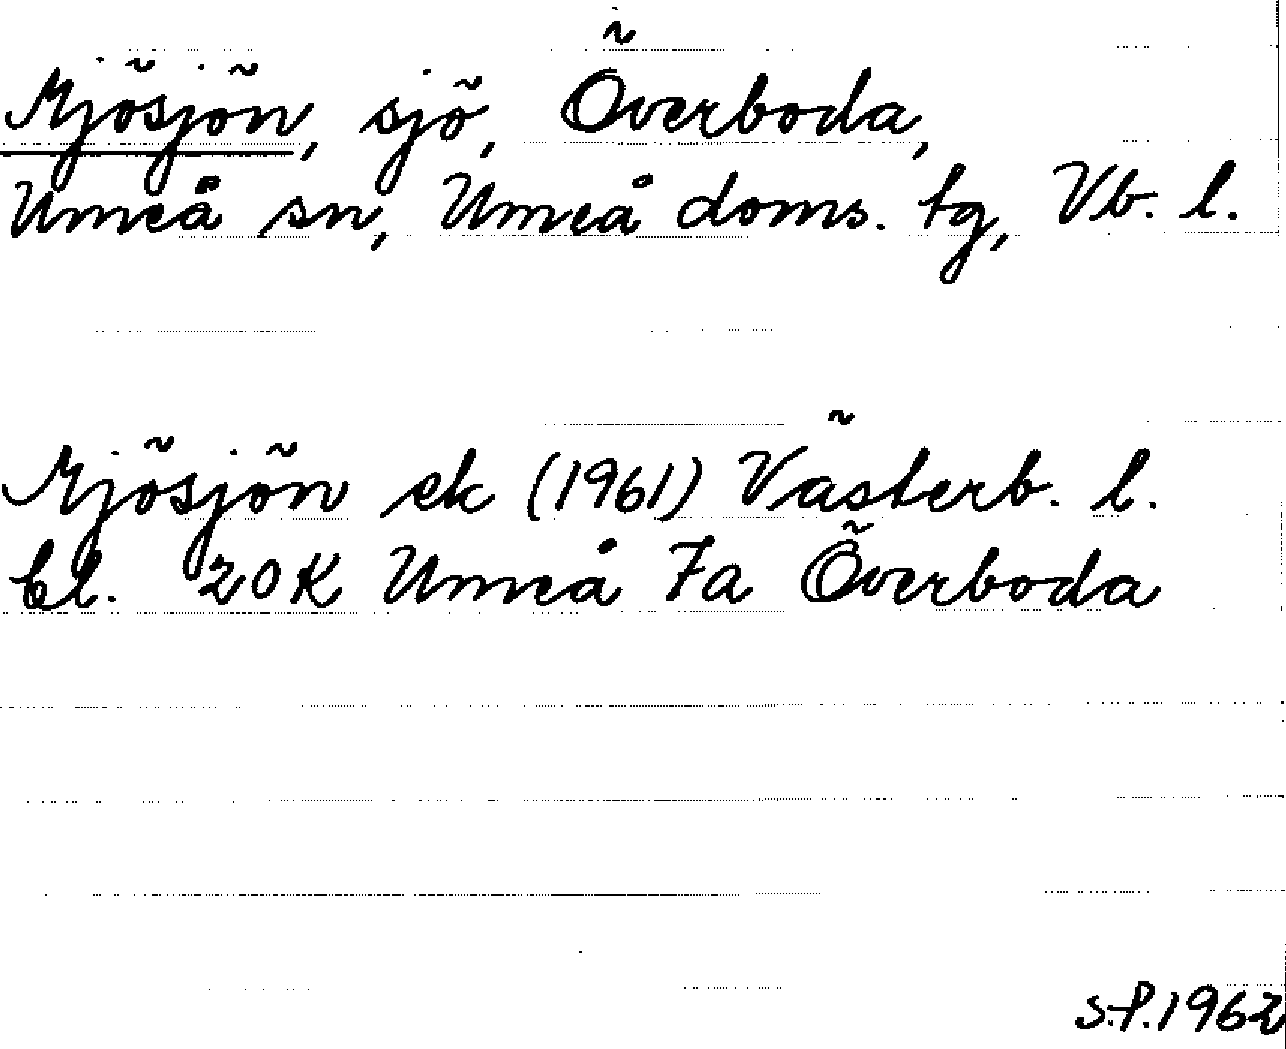 Mjösjön, sjö, Överboda,
Umeå sn, Umeå doms. tg, Vb. l.
Mjösjön ek (1961) Västerb. l.
bl. 20K Umeå 7a Överboda
S.P.1962